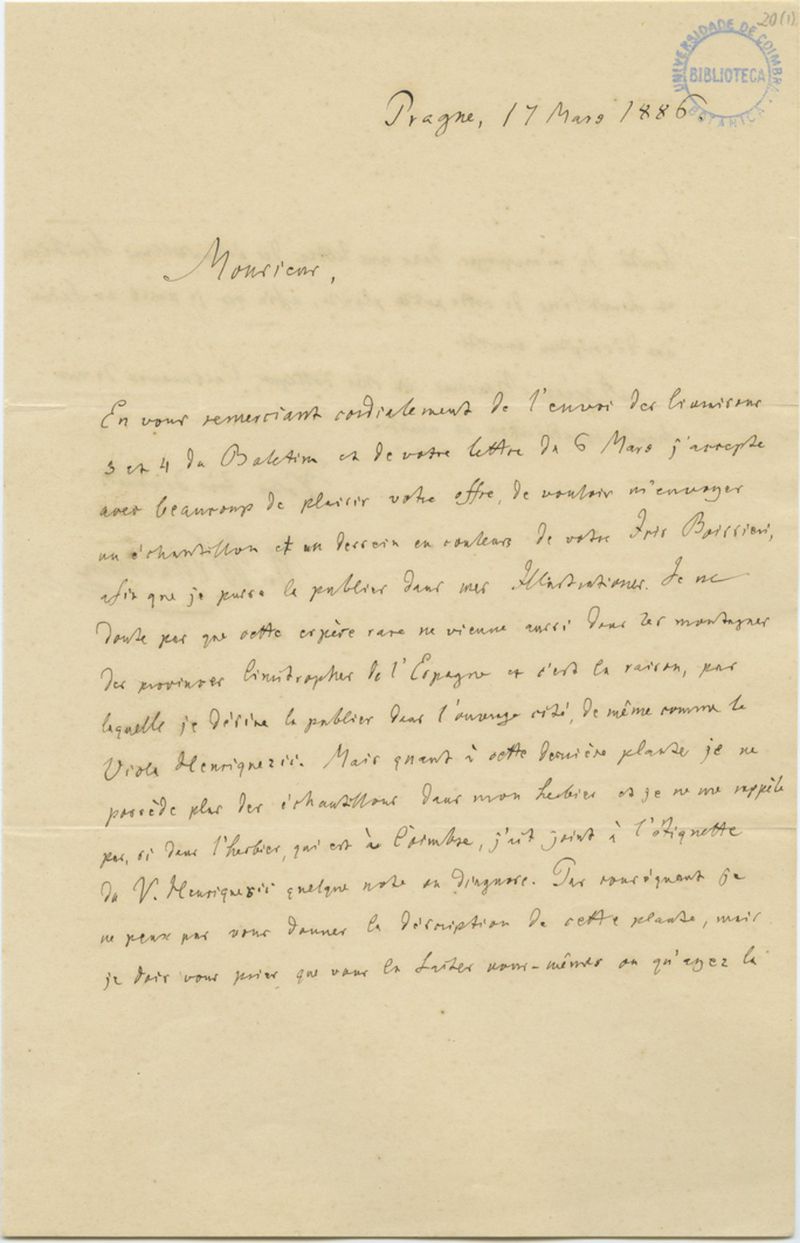 20(1)
UNIVERSIDADE DE COIMBRA
BIBLIOTECA
BOTANICA
Prague, 17 Mars 1886.
Monsieur,
En vous remerciant cordialement de l'envoi des livraisons
3 et 4 du Boletim et de votre lettre du 6 Mars j'accepte
avec beaucoup de plaisir votre offre, de vouloir m'envoyer
un échantillon et un dessein en couleurs de votre Iris Boissieri,
afin que je puisse le publier dans mes Illustrationes. Je ne
doute pas que cette espèce rare ne vienne aussi dans les montagnes
des provinces limitrophes de l'Espagne et c'est la raison, par
laquelle je désire la publier dans l'ouvrage cité, de même comme la
Viola Henriquesii. Mais quant à cette dernière plante je ne
possède plus des échantillons dans mon herbier et je ne me rappèle
pas, si dans l'herbier, qui est à Coimbre, j'ait joint à l'étiquette
du V. Henriquesii quelque note ou diagnose. Par conséquent je
ne peux pas vous donner la déscription de cette plante, mais
je dois vous prier, que vous la faites vous-mêmes ou qu'ayez la